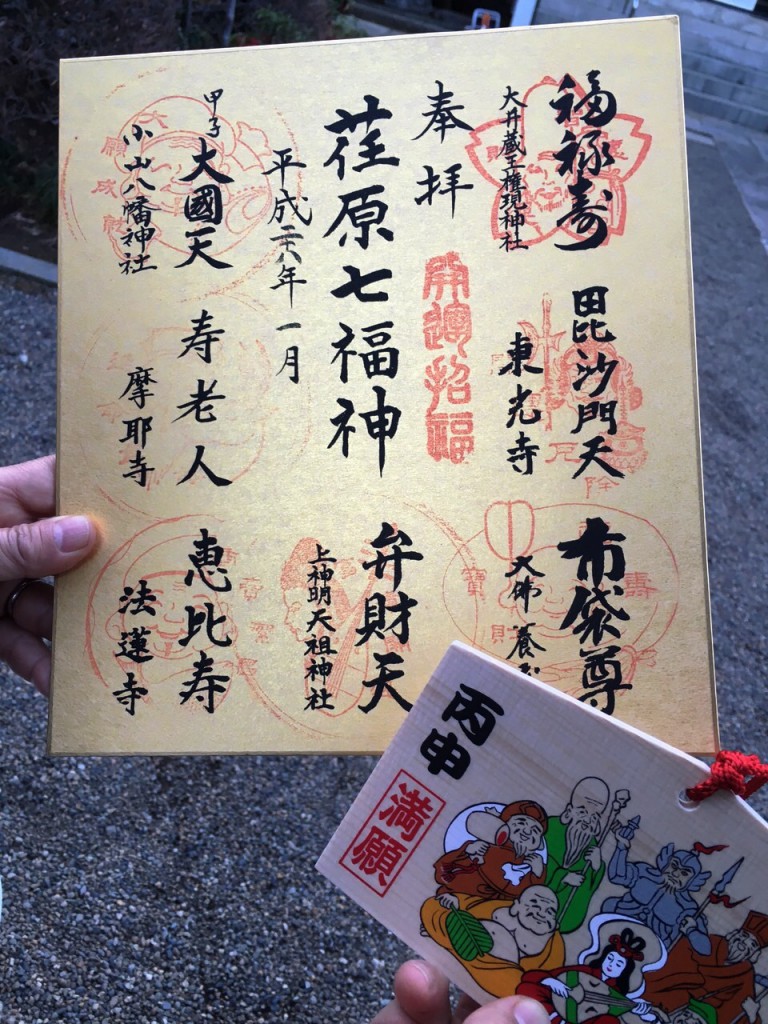 福禄寿
大井蔵王権現神社
毘沙門天
東光寺
布袋尊
大佛 養
奉拝
開運招福
荏原七福神
平成二十八年一月
弁財天
上神明天祖神社
甲子 大國天
小山八幡神社
寿老人
摩耶寺
恵比寿
法蓮寺
丙申
満願